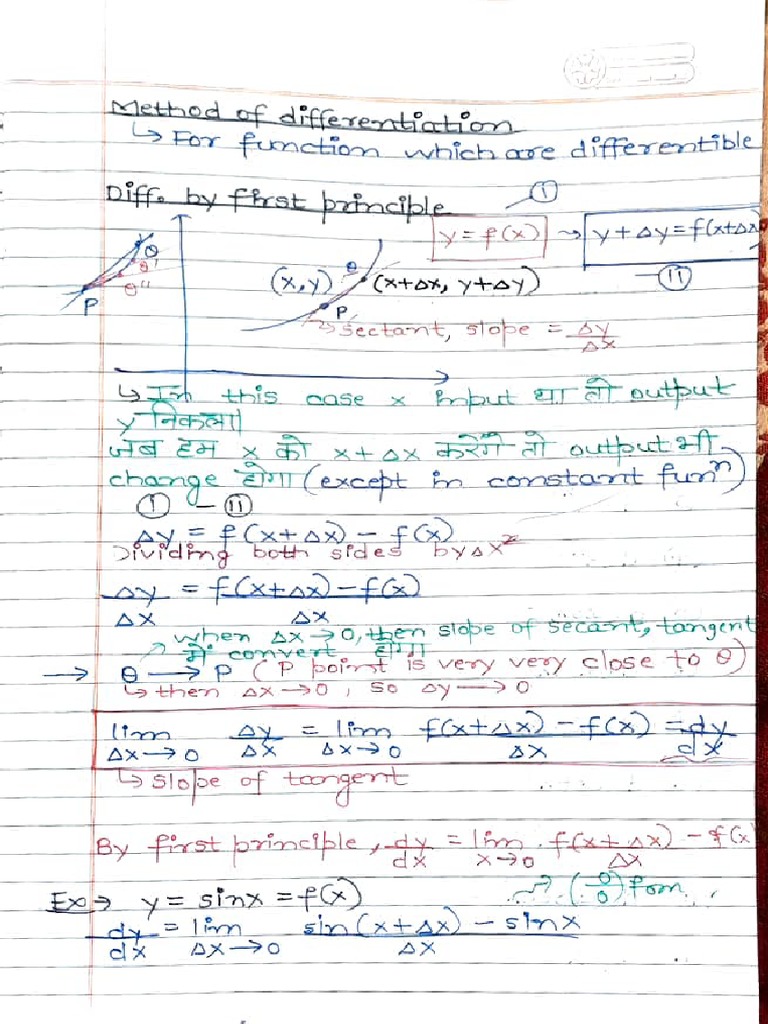 Method of differentiation
↳ For function which are differentible
Diff. by first principle
①
y = f(x) → y + Δy = f(x+Δx)
⑪
Q
Q'
Q''
P
(x,y)
Q
(x+Δx, y+Δy)
P
→ sectant, slope = Δy/Δx
↳ In this case x input था तो output
y निकला।
जब हम x को x+Δx करेंगे तो output भी
change होगा (except in constant funⁿ)
① - ⑪
Δy = f(x+Δx) - f(x)
Dividing both sides by Δx
Δy/Δx = f(x+Δx) - f(x)/Δx
when Δx→0, then slope of secant, tangent
में convert होगा
→ Q → P (P point is very very close to Q)
↳ then Δx→0, so Δy→0
lim Δx→0 Δy/Δx = lim Δx→0 f(x+Δx) - f(x)/Δx = dy/dx
↳ slope of tangent
By first principle, dy/dx = lim x→0 f(x+Δx) - f(x/Δx
(0/0) fom
Ex→ y = sinx = f(x)
dy/dx = lim Δx→0 sin(x+Δx) - sinx/Δx